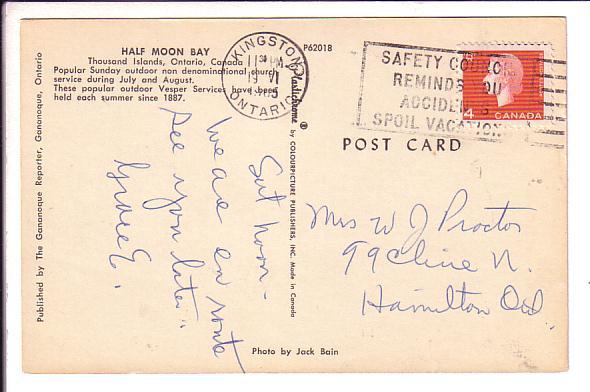 HALF MOON BAY
Thousand Islands, Ontario, Canada
Popular Sunday outdoor non denominational church
service during July and August.
These popular outdoor Vesper Services have been
held each summer since 1887.
P62018
KINGSTON
11 30 PM
19 VI
ONTARIO
SAFETY COUNCIL
REMINDS YOU
ACCIDENTS
SPOIL VACATIONS
4 CANADA
POST CARD
Published by The Gananoque Reporter, Gananoque, Ontario
Plastichrome ® by COLOURPICTURE PUBLISHERS, INC. Made in Canada
Sat noon.
We are en route
See you later.
Grace E.
Mrs W J Proctor
99 Cline N.
Hamilton Ont.
Photo by Jack Bain